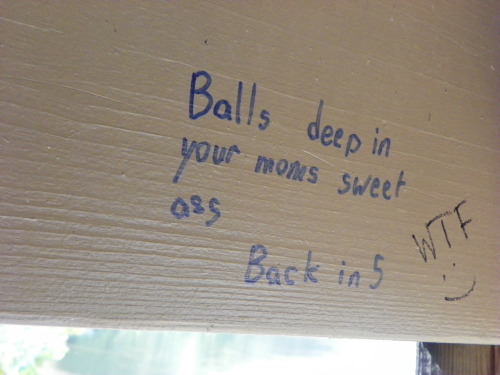 Balls deep in
your moms sweet
ass
Back in 5
WTF
:)